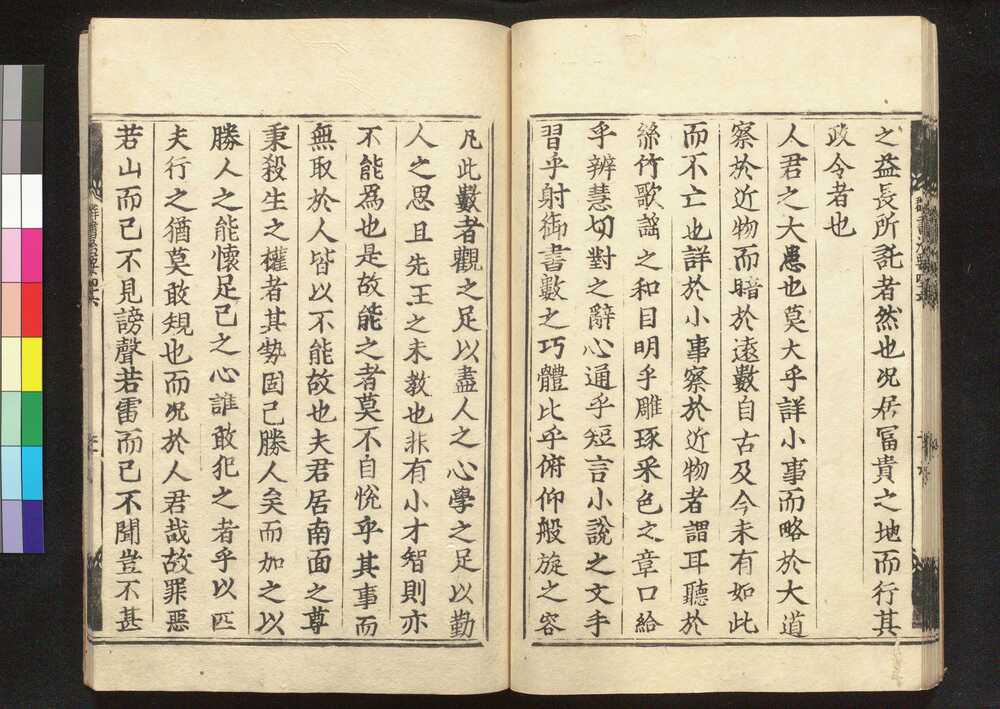 之益長所託者然也况居冨貴之地而行其
政令者也
人君之大患也莫大乎詳小事而略於大道
察於近物而暗於遠數自古及今未有如此
而不亡也詳於小事察於近物者謂耳聽於
絲竹歌謡之和目明乎雕琢采色之章口給
乎辨慧切對之辭心通乎短言小說之文手
習乎射御書數之巧體比乎俯仰般旋之容
凡此數者觀之足以盡人之心學之足以勤
人之思且先王之末教也非有小才智則亦
不能爲也是故能之者莫不自悅乎其事而
無取於人皆以不能故也夫君居南面之尊
秉殺生之權者其勢固已勝人矣而加之以
勝人之能懷足已之心誰敢犯之者乎以匹
夫行之猶莫敢規也而况於人君哉故罪惡
若山而已不見謗聲若雷而已不聞豈不甚